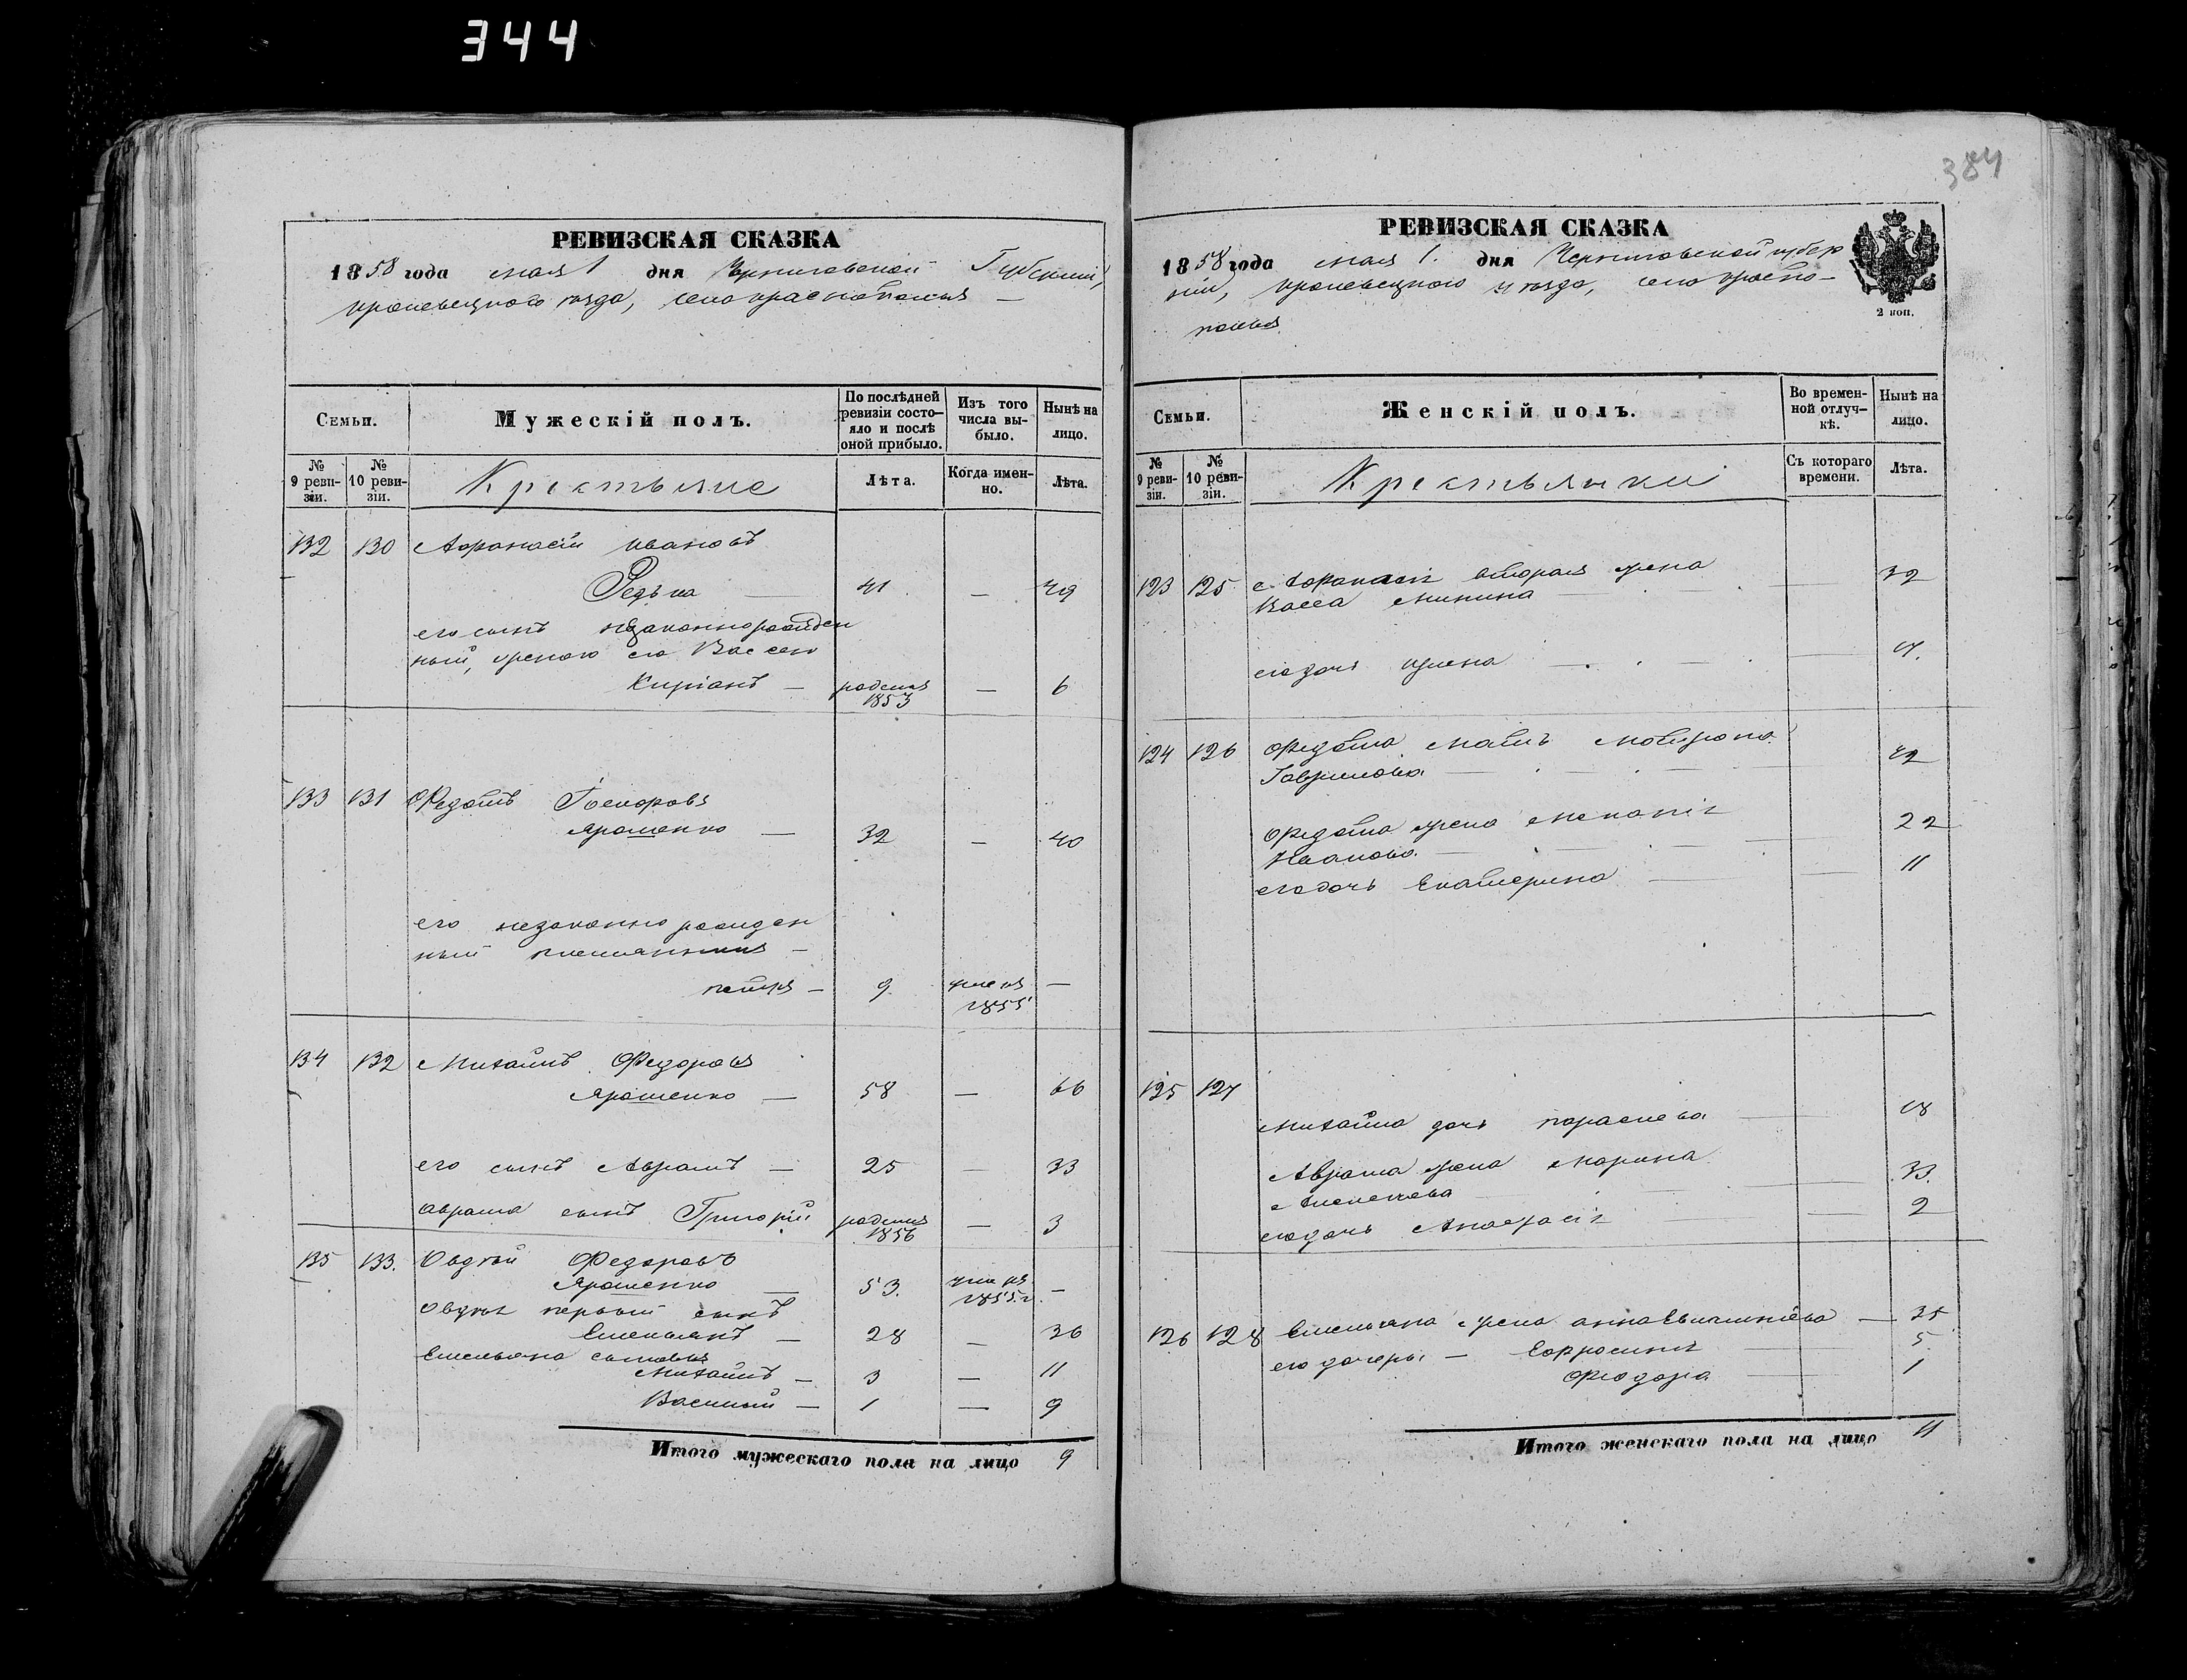 344
384
РЕВИЗСКАЯ СКАЗКА
1858 года мая 1 дня Черниговской Губерніи,
кролевецкого уезда, село краснополья
Семьи.
Мужескій полъ.
По послѣдней ревизіи состояло и послѣ оной прибыло.
Изъ того числа выбыло.
Нынѣ на лицо.
№ 9 ревизіи.
№ 10 ревизіи.
Крестьяне
Лѣта.
Когда именно.
Лѣта.
132 130 Афанасій Ивановъ
Редька 41 — 49
его сынъ незаконнорожден
ный, женою его Вассою
Кипріанъ — родился 1853 — 6
133 131 Федотъ
Ярошенко — 32 — 40
его незаконно рожден
ный племянникъ —
петръ — 9 умеръ 1855 —
134 132 Михаилъ Федоровъ
Ярошенко — 58 — 66
его сынъ Аврамъ — 25 — 33
аврама сынъ Григорій родился 1856 — 3
135 133. Овдій Федоровъ
Ярошенко — 53. умеръ 1855 г. —
первый сынъ
Емельянъ — 28 — 36
Емельяна сыновья
Михаилъ — 3 — 11
Василий — 1 — 9
Итого мужескаго пола на лицо 9
РЕВИЗСКАЯ СКАЗКА
1858 года мая 1. дня Черниговской губер
ніи, кролевецкого уезда, село красно-
полья
2 коп.
Семьи.
Женскій полъ.
Во временной отлучкѣ.
Нынѣ на лицо.
№ 9 ревизіи.
№ 10 ревизіи.
Крестьянки
Съ котораго времени.
Лѣта.
123 125 Афанасія вторая жена
Васса Минина — 32
его дочь
124 126 Федота мать
Гаврилова
Федота жена Меланія 22
Иванова.
его дочь Екатерина — 11
125 127
Михаила дочь — 18
Аврама жена Марина 33.
Алексеева
его дочь Анастасія — 2
126 128 Емельяна жена анна — 35
его дочери — Ефросинія — 5
Феодора — 1
Итого женскаго пола на лицо 11